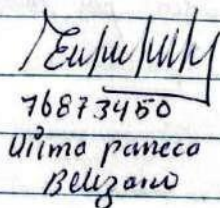 76873450
Vilma paneca
Belizano